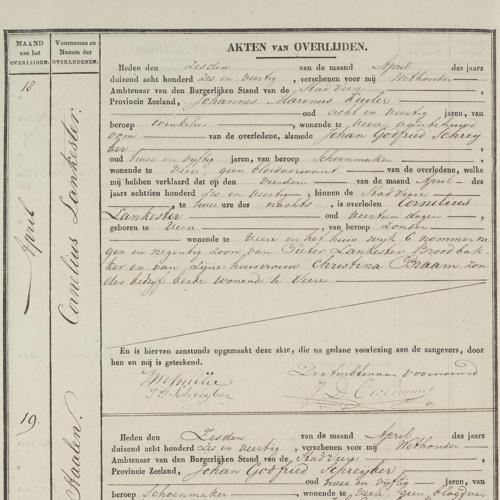 MAAND
van het
OVERLIJDEN.
Voornamen en
Namen der
OVERLEDENEN.
AKTEN VAN OVERLIJDEN.
18
April
Cornelius Lankester:
Heden den Zesden van de maand April des jaars
duizend acht honderd Zes en veertig, verschenen voor mij Wethouder
Ambtenaar van den Burgerlijken Stand van de Stad Veere
Provincie Zeeland, Johannes Marinus
oud acht en veertig jaren, van
beroep winkelier wonende te Veere aanbehuwd
oom van de overledene, alsmede Johan Godfried Schrey
ber
oud twee en vijftig jaren, van beroep Schoenmaker
wonende te Veere, geen bloedverwant van de overledene, welke
mij hebben verklaard dat op den Vierden van de maand April des
jaars achttien honderd Zes en veertig, binnen de Stad Veere
te twee ure des nachts, is overleden Cornelius
Lankester oud veertien dagen
geboren te Veere, van beroep zonder
wonende te Veere en het huis wijk 6 nommer ne
gen en negentig zoon van Pieter Lankester Broodbak
ker en van zijne huisvrouw Christina Braam zon
der bedrijf beide wonende te Veere
En is hiervan aanstonds opgemaakt deze akte, die na gedane voorlezing aan de aangevers, door
hen en mij is geteekend.
De Ambtenaar voornoemd
J G Schreyber
19.
Heden den Zesden van de maand April des jaars
duizend acht honderd Zes en veertig, verschenen voor mij Wethouder
Ambtenaar van den Burgerlijken Stand van de Stad Veere
Provincie Zeeland, Johan Godfried Schreyber
oud twee en vijftig jaren, van
beroep Schoenmaker wonende te Veere, geen bloedver